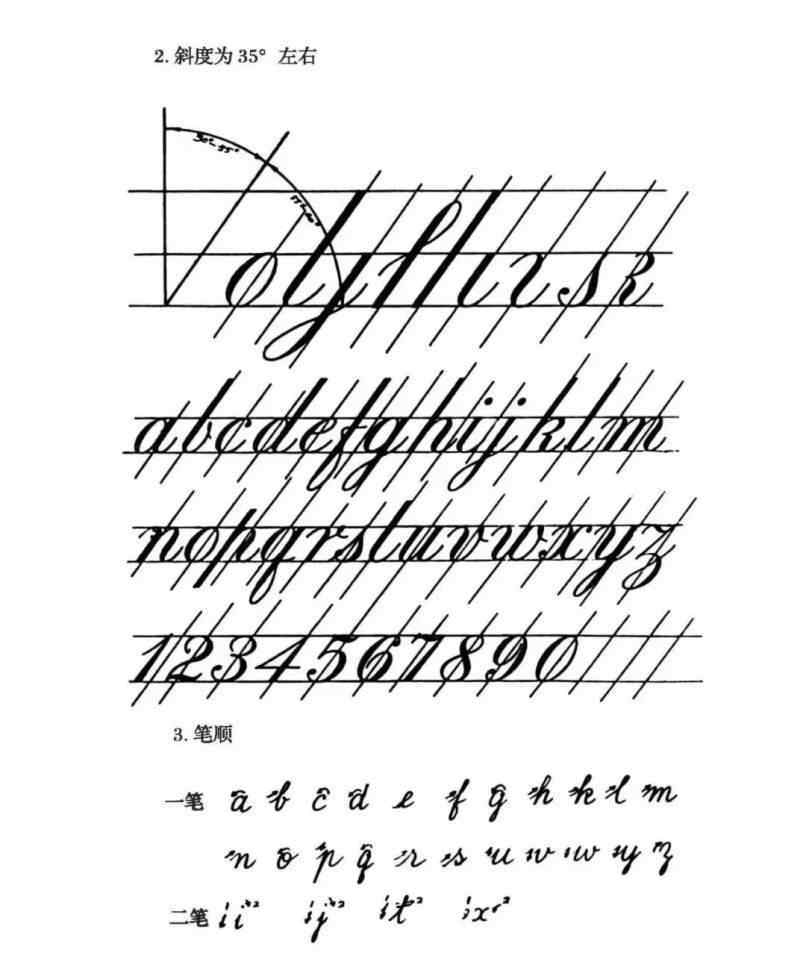 2. 斜度为 35° 左右
30°-35°
abcdefghijklm
nopqrstuvwxyz
1234567890
3. 笔顺
一笔 a b c d e f g h k l m
n o p q r s u v w y z
二笔 i j t x